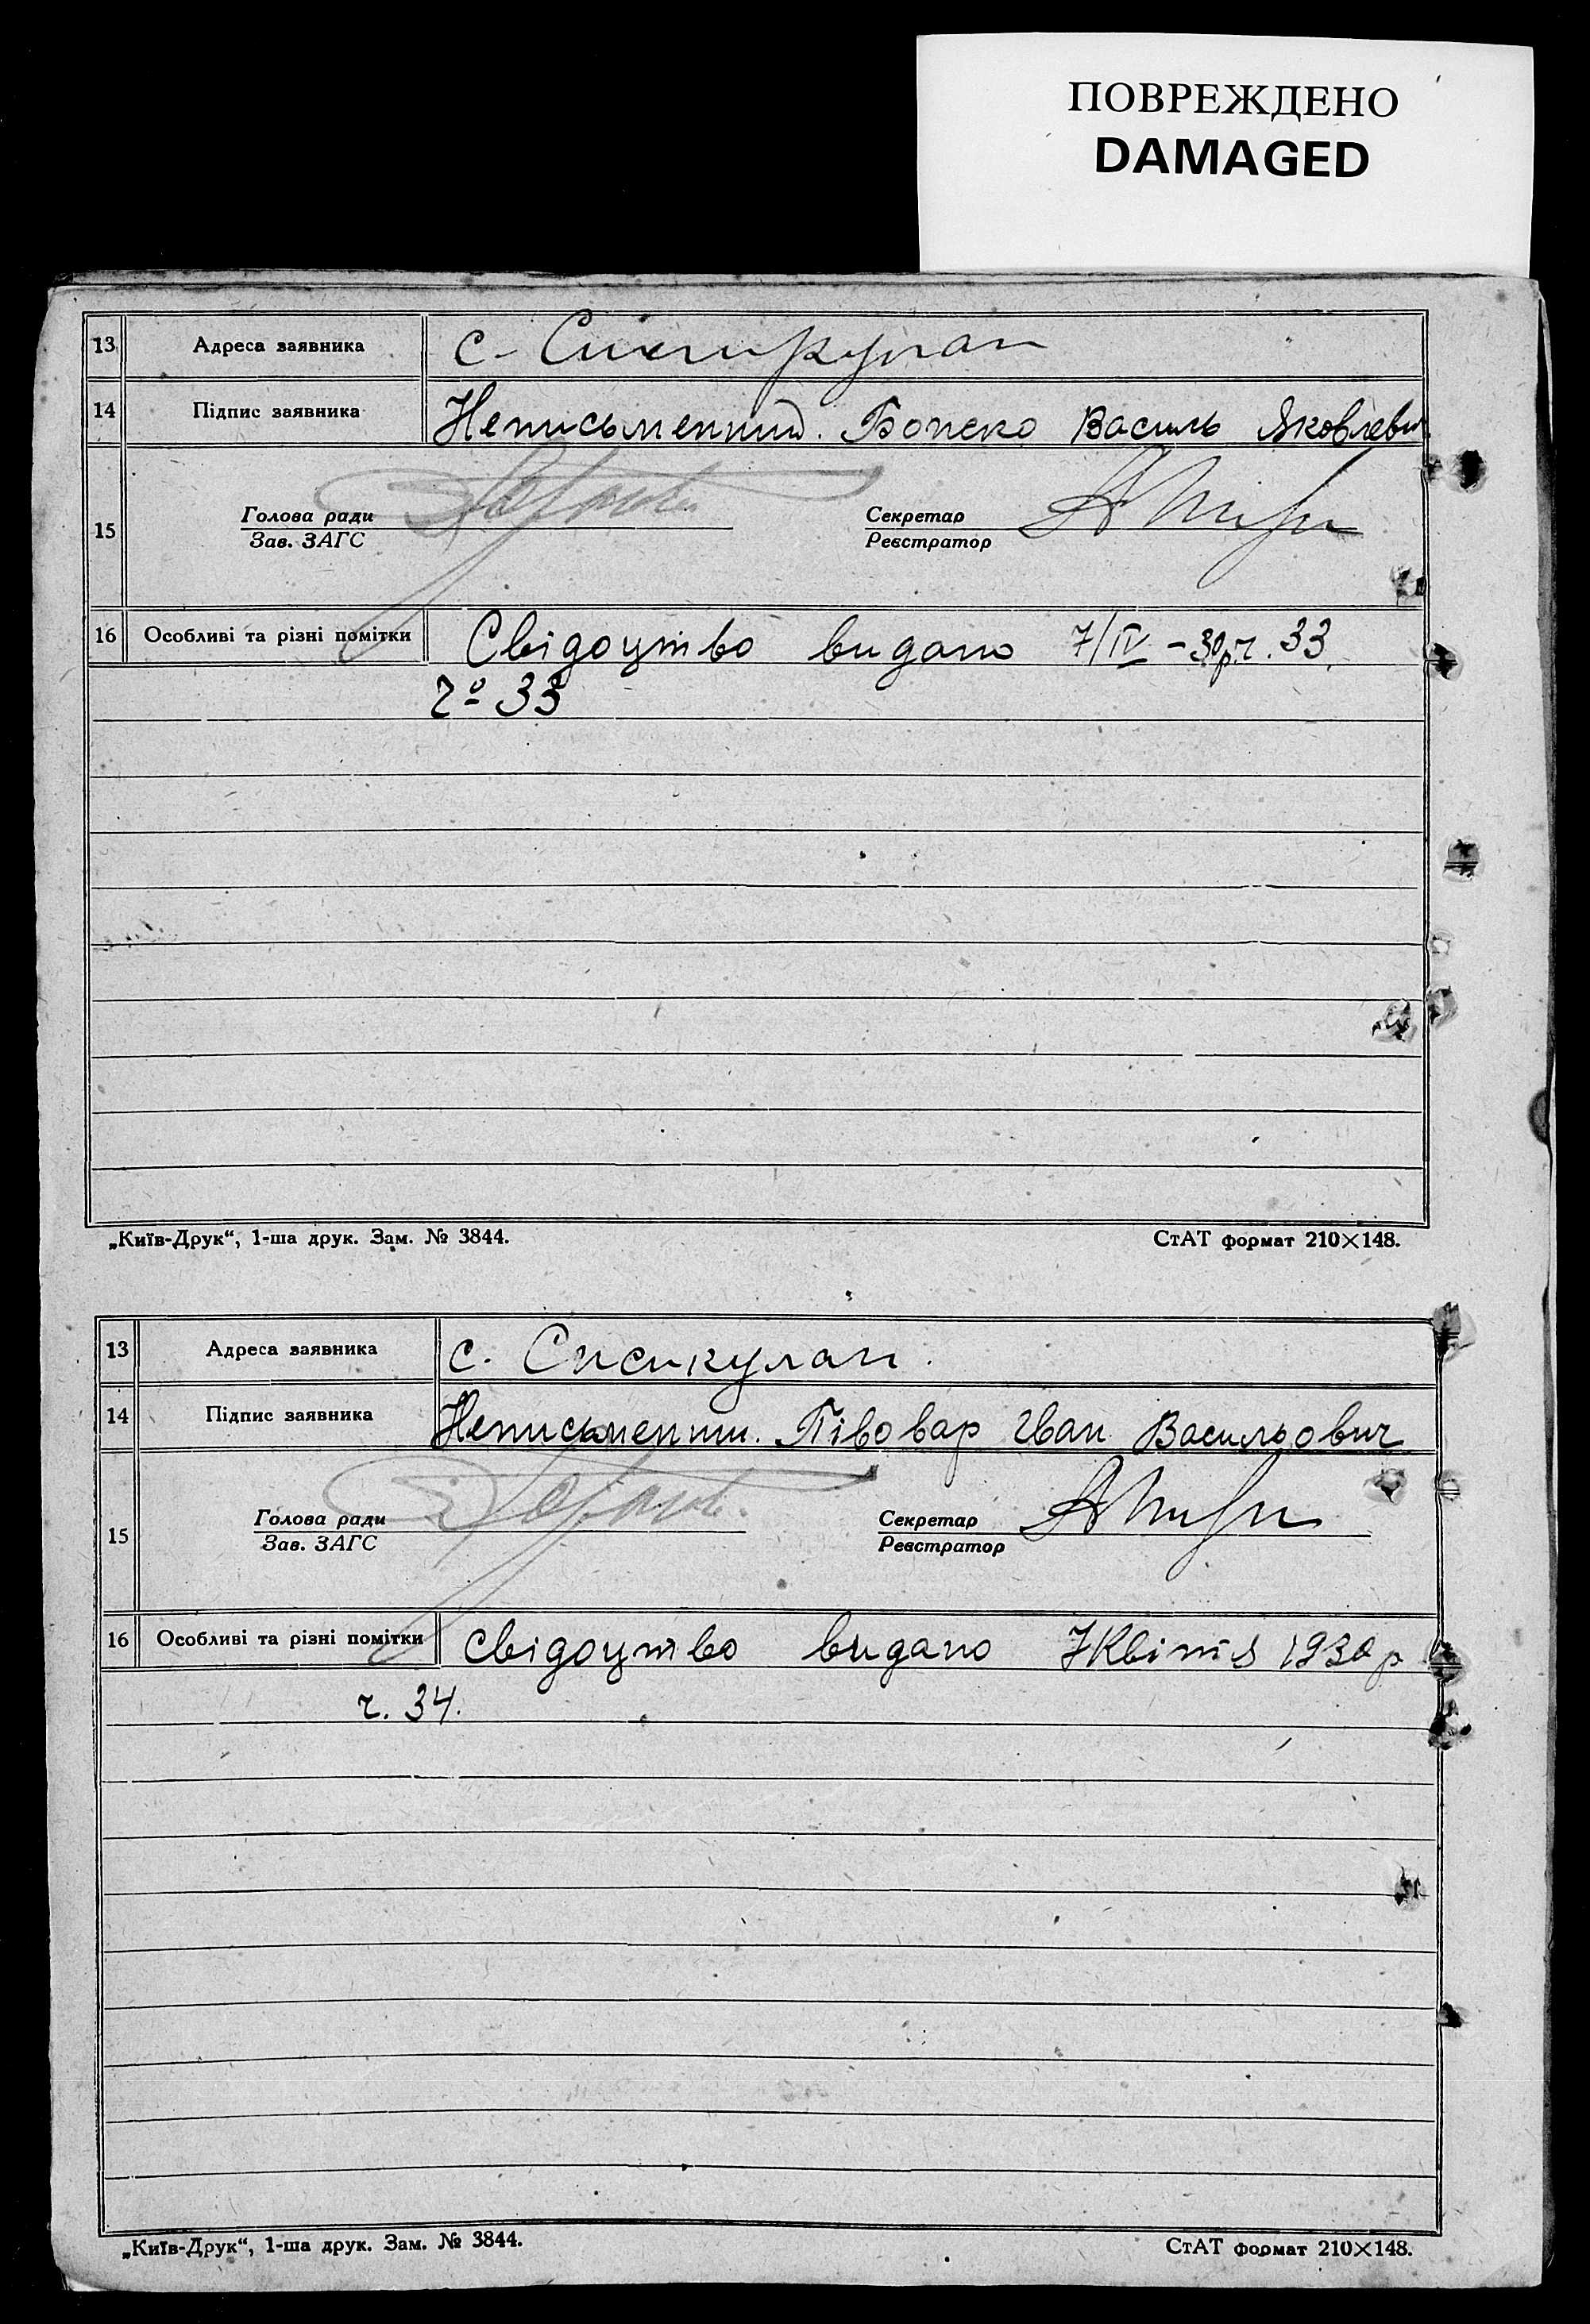 ПОВРЕЖДЕНО
DAMAGED
13 Адреса заявника с.
14 Підпис заявника Неписьменний. Василь Яковлевич
15 Голова ради Секретар
Зав. ЗАГС Реєстратор
16 Особливі та різні помітки Свідоцтво видано 7/IV - 30р. ч. 33.
ч⁰ 33
„Київ-Друк“, 1-ша друк. Зам. № 3844. СтАТ формат 210×148.
13 Адреса заявника с.
14 Підпис заявника Неписьменни. Півовар Іван Васильович
15 Голова ради Секретар
Зав. ЗАГС Реєстратор
16 Особливі та різні помітки Свідоцтво видано 7 Квітня 1930 р
ч. 34.
„Київ-Друк“, 1-ша друк. Зам. № 3844. СтАТ формат 210×148.